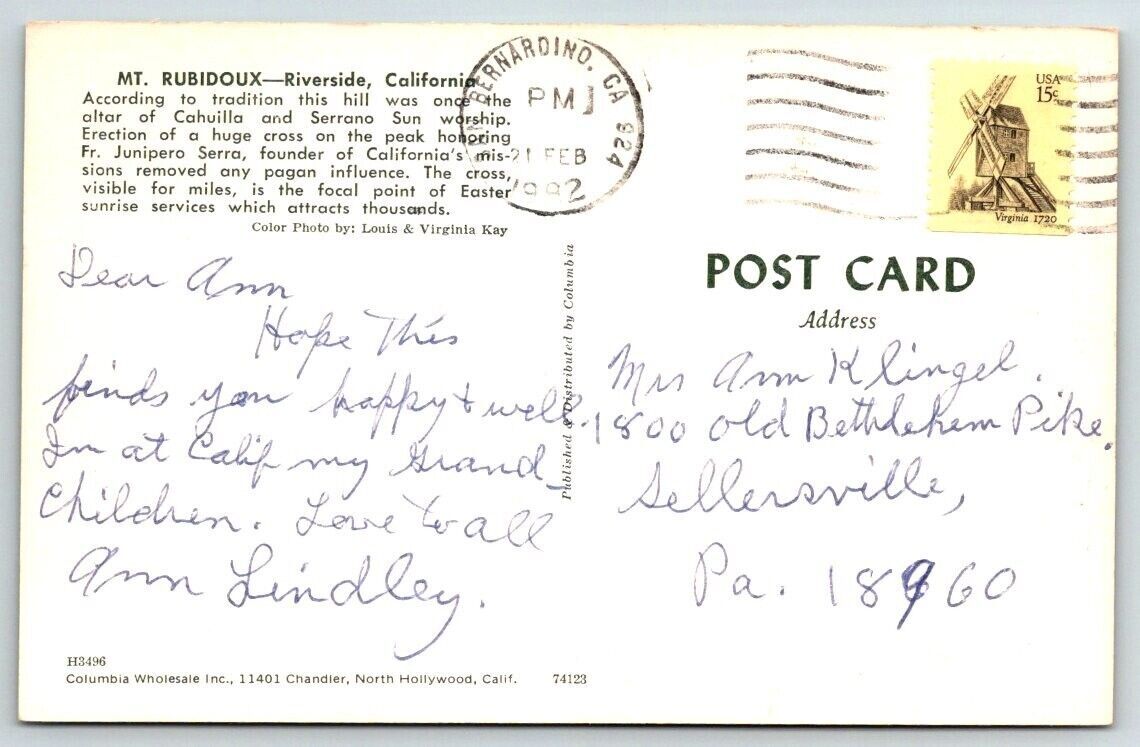 MT. RUBIDOUX—Riverside, California
According to tradition this hill was once the
altar of Cahuilla and Serrano Sun worship.
Erection of a huge cross on the peak honoring
Fr. Junipero Serra, founder of California's mis-
sions removed any pagan influence. The cross,
visible for miles, is the focal point of Easter
sunrise services which attracts thousands.
Color Photo by: Louis & Virginia Kay
BERNARDINO, CA 924
PM
21 FEB
1992
USA
15c
Virginia 1720
Dear Ann
Hope This
finds you happy & well.
Im at Calif my Grand-
Children. Love to all
Ann Lindley.
Published & Distributed by Columbia
POST CARD
Address
Mrs Ann Klingel.
1800 old Bethlehem Pike.
Sellersville,
Pa. 18960
H3496
Columbia Wholesale Inc., 11401 Chandler, North Hollywood, Calif. 74123